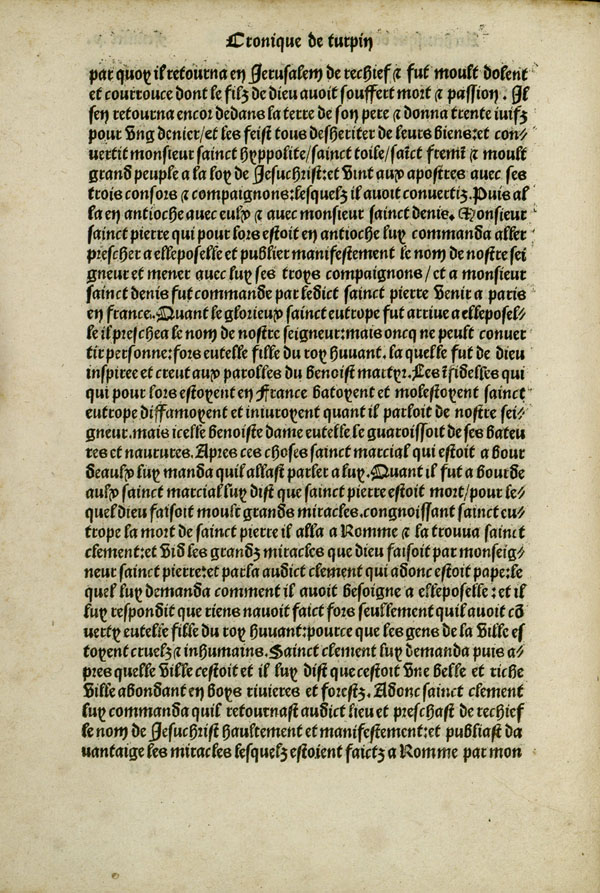 Cronique de turpin
par quoy il retourna en Jerusalem de rechief ⁊ fut moult dolent
et courrouce dont le filz de dieu avoit souffert mort ⁊ passion. Il
sen retourna encor dedans la terre de son pere ⁊ donna trente iuifz
pour ung denier/et les feist tous desheriter de leurs biens:et con⸗
vertit monsieur sainct hyppolite/sainct toile/saĩct fremĩ ⁊ moult
grand peuple a la loy de Jesuchrist:et vint aux apostres avec ses
trois consors ⁊ compaignons:lesquelz il avoit convertiz.Puis al
la en antioche avec eulx ⁊ avec monsieur sainct denis. Monsieur
sainct pierre qui pour lors estoit en antioche luy commanda aller
prescher a elleposelle et publier manifestement le nom de nostre sei
gneur et mener avec luy ses troys compaignons/et a monsieur
sainct denis fut commande par ledict sainct pierre venir a paris
en france. Quant le glorieux sainct eutrope fut arrive a elleposel⸗
le il preschea le nom de nostre seigneur:mais oncq ne peult conver
tir personne:fors eutelle fille du roy huvant. la quelle fut de dieu
inspiree et creut aux parolles du benoist martyr.Les ĩfidelles qui
qui pour lors estoyent en France batoyent et molestoyent sainct
eutrope diffamoyent et iniuroyent quant il parloit de nostre sei⸗
gneur.mais icelle benoiste dame eutelle le guarissoit de ses bateu
res et navrures. Apres ces choses sainct marcial qui estoit a bour
deaulx luy manda quil allast parler a luy. Quant il fut a bourde
aulx sainct marcial luy dist que sainct pierre estoit mort/pour le⸗
quel dieu faisoit moult grands miracles.congnoissant sainct eu⸗
trope la mort de sainct pierre il alla a Romme ⁊ la trouva sainct
clement:et vid les grandz miracles que dieu faisoit par monseig⸗
neur sainct pierre:et parla audict clement qui adonc estoit pape:le
quel luy demanda comment il avoit besoigne a elleposelle:et il
luy respondit que riens navoit faict fors seullement quil avoit cõ
verty eutelle fille du roy huvant:pource que les gens de la ville es
toyent cruelz ⁊ inhumains. Sainct clement luy demanda puis a⸗
pres quelle ville cestoit et il luy dist que cestoit vne belle et riche
ville abondant en boys rivieres et forestz. Adonc sainct clement
luy commanda quil retournast audict lieu et preschast de rechief
le nom de Jesuchrist haultement et manifestement:et publiast da
vantaige les miracles lesquelz estoient faictz a Romme par mon